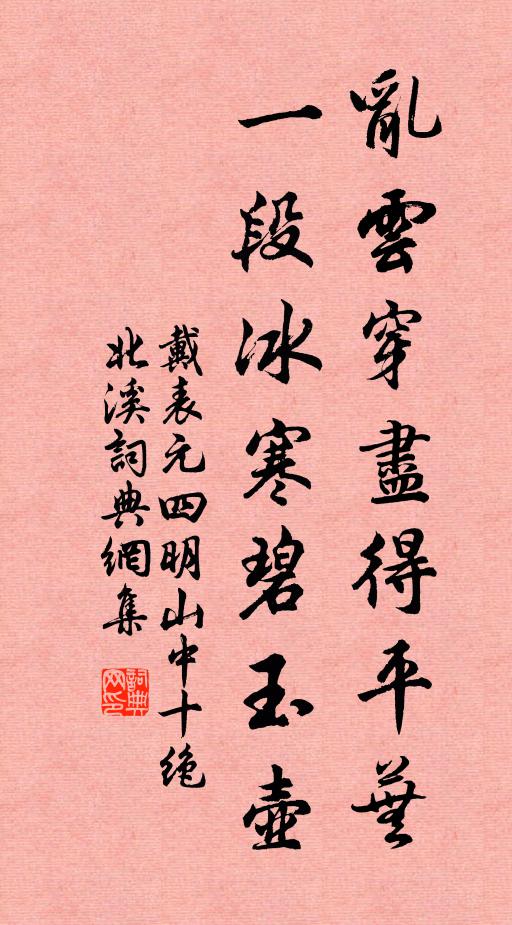 亂雲穿盡得平蕪
一段冰寒碧玉壺
戴表元四明山中十絶
北溪詞典網集
詞典网印